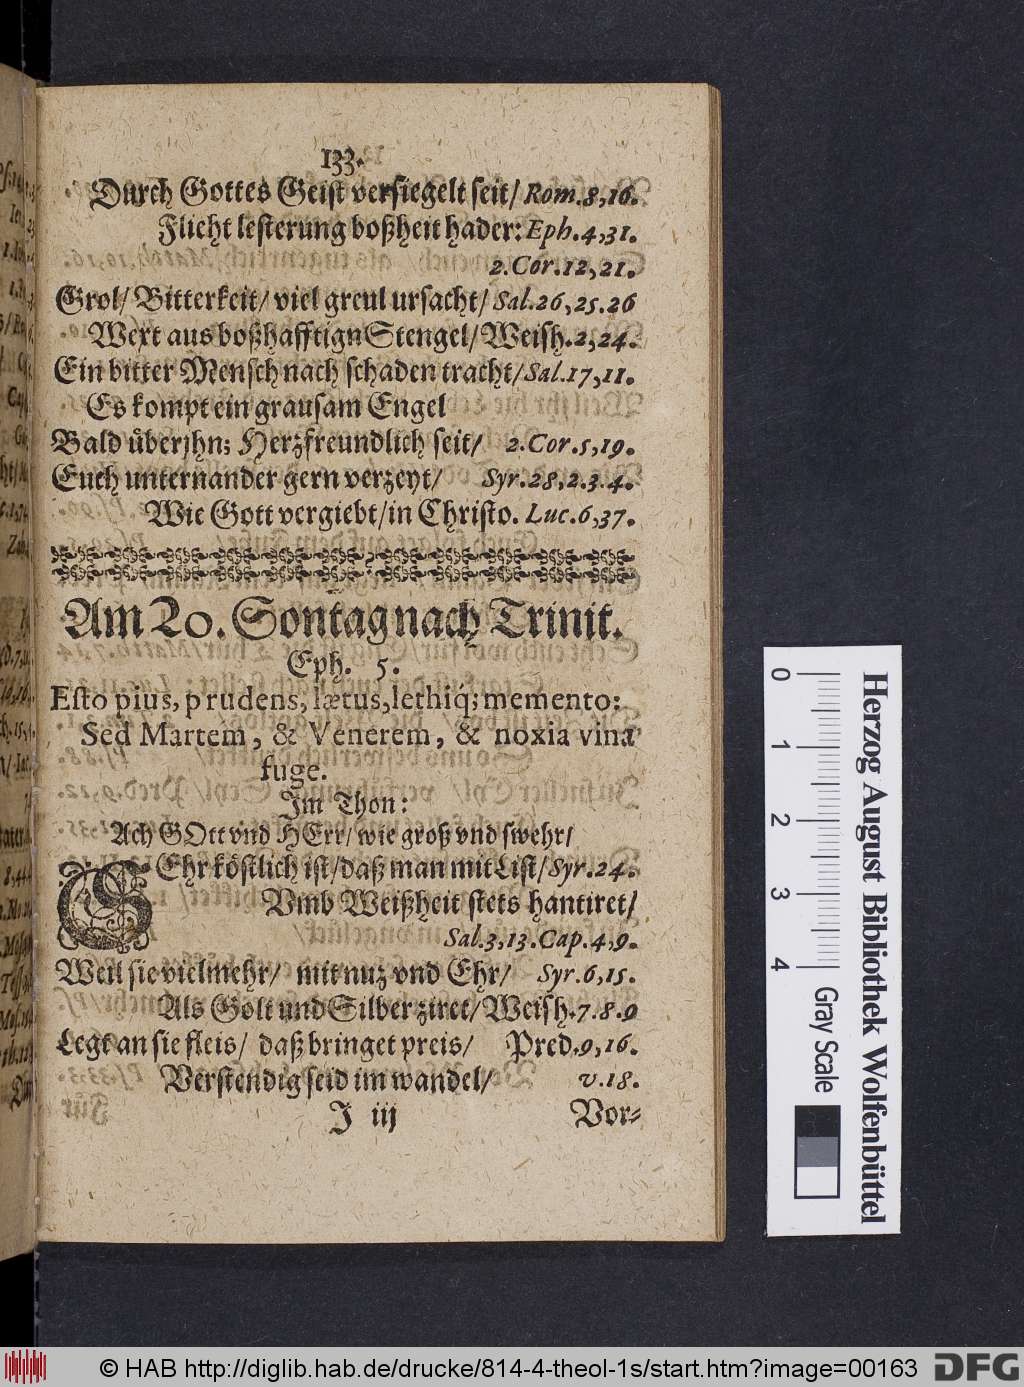 133.
Durch Gottes Geist versiegelt seit/ Rom.8,16.
Flieht lesterung boßheit hader: Eph.4,31.
2.Cor.12,21.
Grol/ Bitterkeit/ viel greul ursacht/ Sal.26,25.26
Wext aus boßhafftign Stengel/ Weish.2,24.
Ein bitter Mensch nach schaden tracht/ Sal.17,11.
Es kompt ein grausam Engel
Bald über jhn; Herzfreundlich seit/ 2.Cor.5,19.
Euch unternander gern verzeyt/ Syr.28,2.3.4.
Wie Gott vergiebt/in Christo. Luc.6,37.
Am 20. Sontag nach Trinit.
Eph. 5.
Esto pius, prudens, lætus, lethiq; memento:
Sed Martem, & Venerem, & noxia vina
fuge.
Im Thon:
Ach GOtt vnd HErr/ wie groß vnd swehr/
SEhr köstlich ist/daß man mit List/ Syr.24.
Vmb Weißheit stets hantiret/
Sal.3,13.Cap.4,9.
Weil sie vielmehr/ mit nuz vnd Ehr/ Syr.6,15.
Als Golt und Silber ziret/ Weish.7.8.9
Legt an sie fleis/ daß bringet preis/ Pred.9,16.
Verstendig seid im wandel/ v.18.
J iij Vor-
Herzog August Bibliothek Wolfenbüttel
0 1 2 3 4 Gray Scale
© HAB http://diglib.hab.de/drucke/814-4-theol-1s/start.htm?image=00163
DFG